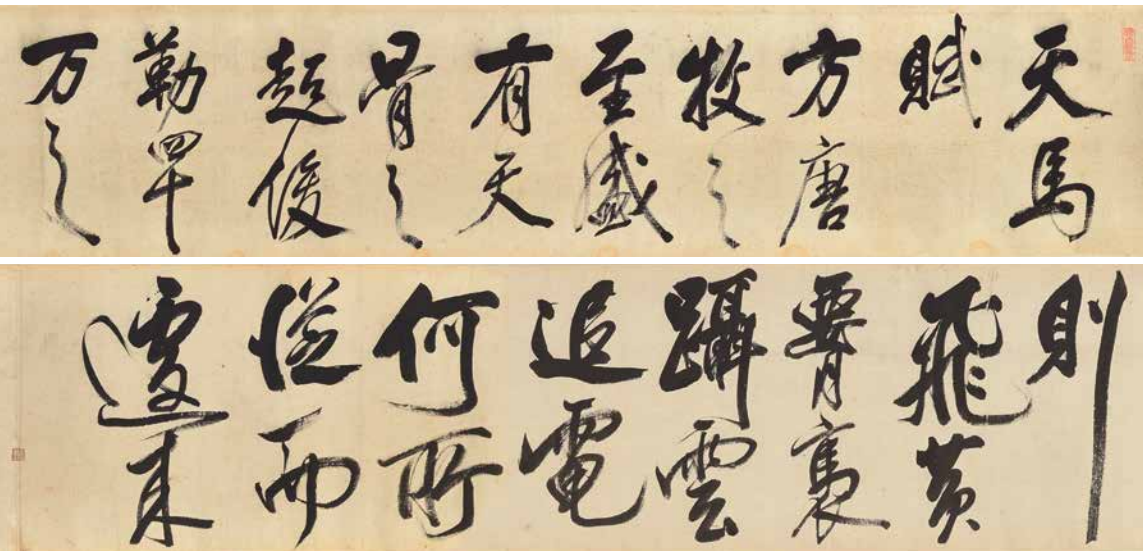 天馬
賦
方唐
牧之
至盛
有天
骨之
超俊
勒四十
万之
則
飛黄
褭
躡雲
追電
何所
從而
遽来